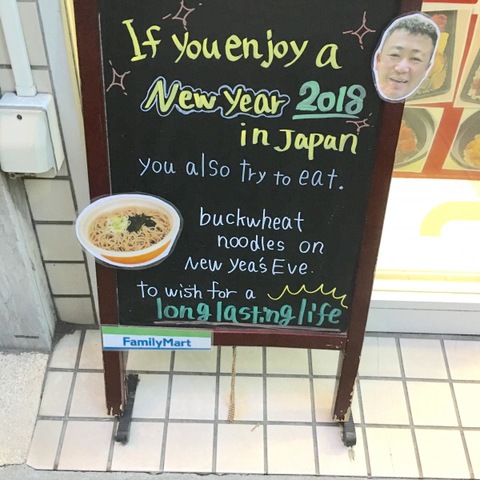 If you enjoy a
New Year 2018
in Japan
you also try to eat.
buckwheat
noodles on
New Yea's Eve.
to wish for a
long lasting life
FamilyMart